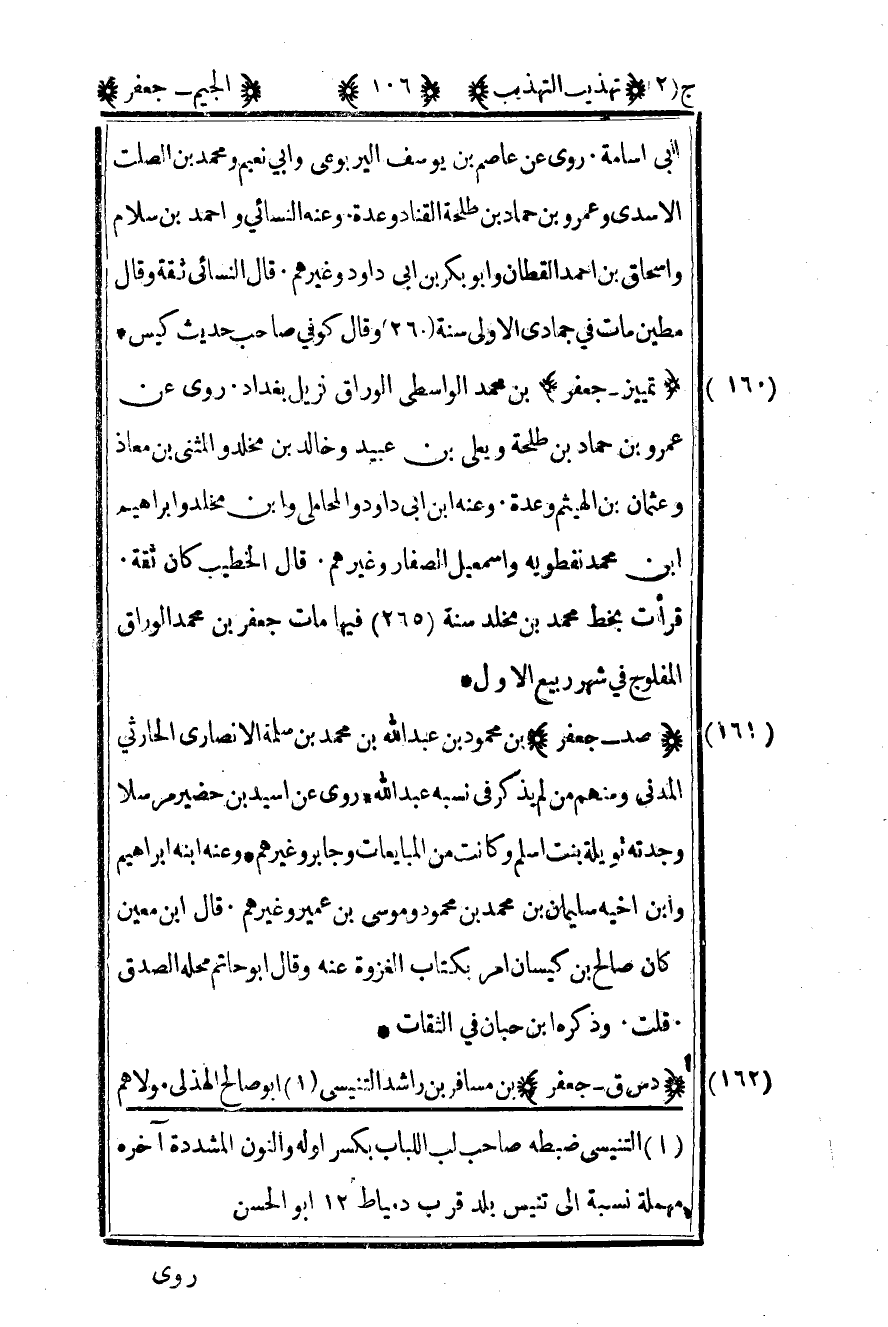 ج(٢) ﴿ تهذيب التهذيب ﴾ ﴿ ١٠٦ ﴾ ﴿ الجيم ـ جعفر ﴾
ابي اسامة ٠ روى عن عاصم بن يوسف اليربوعى وابي نعيم ومحمد بن الصلت
الاسدى وعمرو بن حماد بن طلحة القناد وعدة ٠ وعنه النسائي و احمد بن سلام
واسحاق بن احمد القطان وابو بكر بن ابى داود وغيرهم ٠ قال النسائى ثقة وقال
مطين مات في جمادى الاولى سنة (٢٦٠) وقال كوفي صاحب حديث كيس *
(١٦٠) ﴿ تمييز ـ جعفر ﴾ بن محمد الواسطى الوراق نزيل بغداد ٠ روى عن
عمرو بن حماد بن طلحة ويعلى بن عبيد وخالد بن مخلد و المثنى بن معاذ
وعثمان بن الهيثم وعدة ٠ وعنه ابن ابى داود والمحاملى وابن مخلد وابراهيم
ابن محمد نفطويه واسمعيل الصفار وغيرهم ٠ قال الخطيب كان ثقة ٠
قرأت بخط محمد بن مخلد سنة (٢٦٥) فيها مات جعفر بن محمد الوراق
المفلوج في شهر ربيع الاول *
(١٦١) ﴿ صد ـ جعفر ﴾ بن محمود بن عبدالله بن محمد بن سلمة الانصارى الحارثي
المدنى ومنهم من لم يذكر فى نسبه عبدالله * روى عن اسيد بن حضير مرسلا
وجدته ثويلة بنت اسلم وكانت من المبايعات وجابر وغيرهم * وعنه ابنه ابراهيم
وابن اخيه سليمان بن محمد بن محمود وموسى بن عمير وغيرهم ٠ قال ابن معين
كان صالح بن كيسان امر بكتاب الغزوة عنه وقال ابو حاتم محله الصدق
٠ قلت ٠ وذكره ابن حبان في الثقات *
(١٦٢) ﴿ دس ق ـ جعفر ﴾ بن مسافر بن راشد التنيسى (١) ابو صالح الهذلى ٠ ولاهم
(١) التنيسى ضبطه صاحب لب اللباب بكسر اوله والنون المشددة آخره
مهملة نسبة الى تنيس بلد قرب دمياط ١٢ ابو الحسن
روى